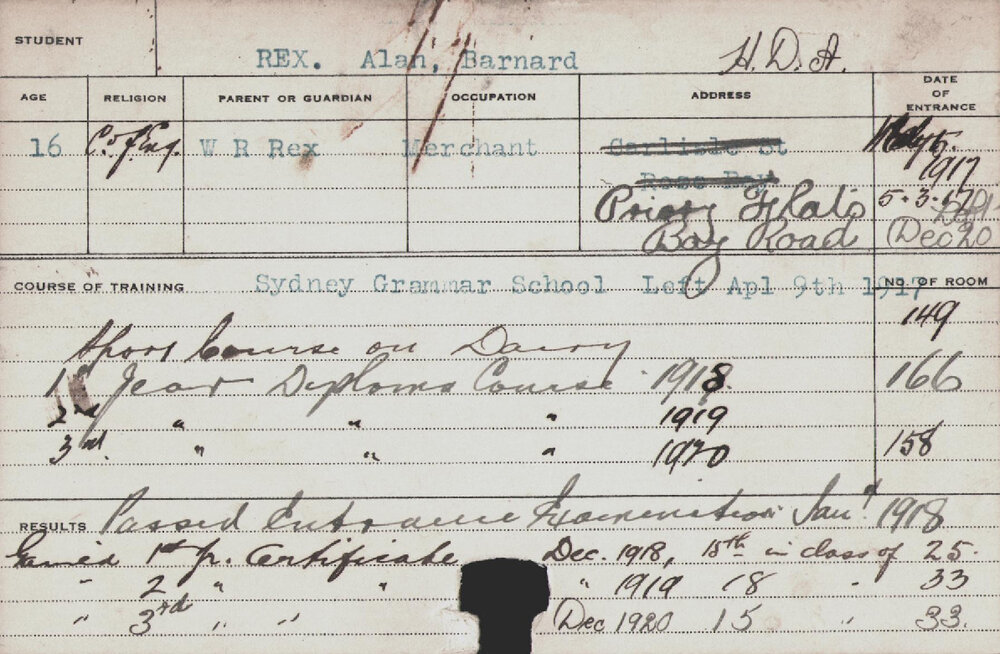 STUDENT REX. Alan, Barnard H.D.A.
AGE RELIGION PARENT OR GUARDIAN OCCUPATION ADDRESS DATE OF ENTRANCE
16 C. of Eng. W R Rex Merchant Carlisle St
1917
Rose Bay 5.3.17
Priory Flats
Bay Road Dec 20
COURSE OF TRAINING Sydney Grammar School Left Apl 9th 1917 NO. OF ROOM
149
Short Course on Dairy
1st Year Diploma Course 1918. 166
2nd " " " 1919
3rd. " " " 1920 158
RESULTS Passed Entrance Examination Jany 1918
Gained 1st yr. Certificate Dec. 1918, 15th in class of 25.
" 2 " " " 1919 18 " 33
" 3rd " " Dec 1920 15 " 33.